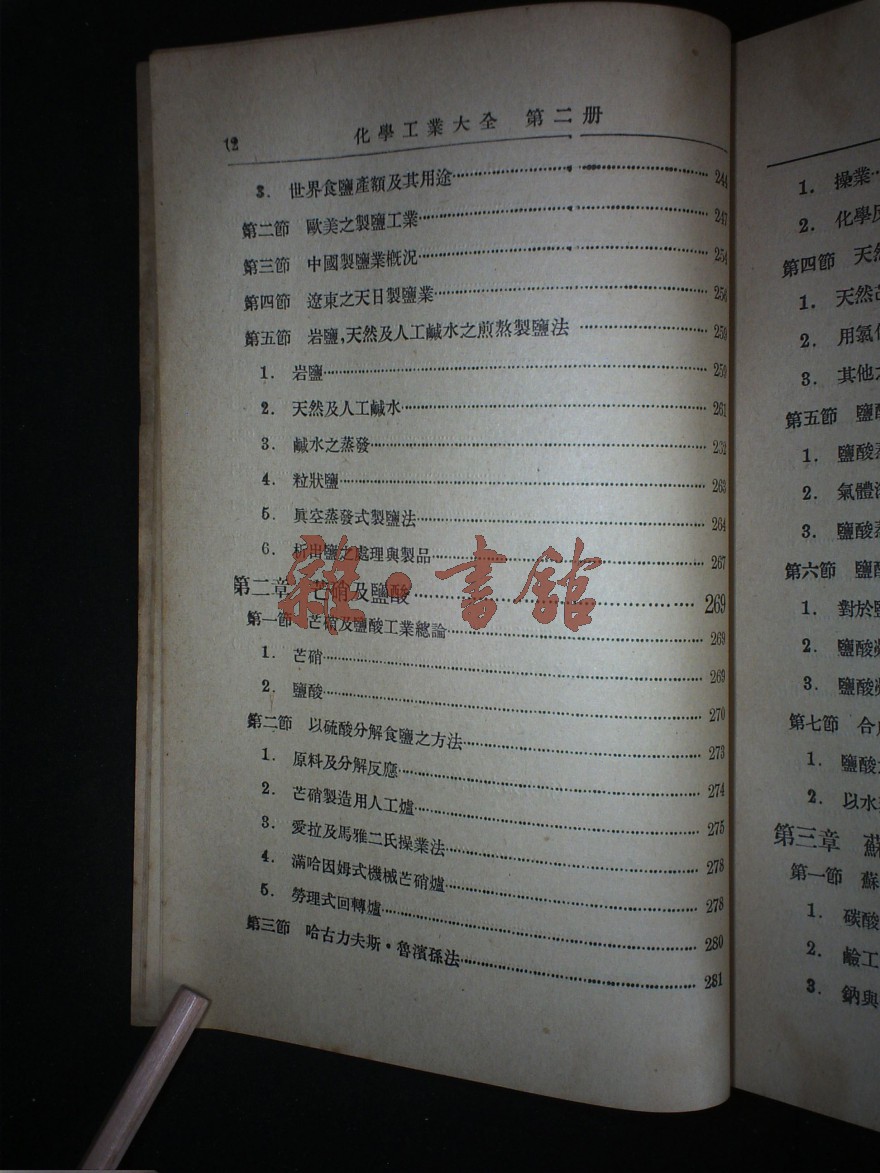 12
化學工業大全 第二册
3. 世界食鹽產額及其用途 244
第二節 歐美之製鹽工業 247
第三節 中國製鹽業概況 254
第四節 遼東之天日製鹽業 256
第五節 岩鹽,天然及人工鹹水之煎熬製鹽法 259
1. 岩鹽 259
2. 天然及人工鹹水 261
3. 鹹水之蒸發 232
4. 粒狀鹽 263
5. 眞空蒸發式製鹽法 264
6. 析出鹽之處理與製品 267
第二章 芒硝及鹽酸 269
雜·書館
第一節 芒硝及鹽酸工業總論 269
1. 芒硝 269
2. 鹽酸 270
第二節 以硫酸分解食鹽之方法 273
1. 原料及分解反應 274
2. 芒硝製造用人工爐 275
3. 愛拉及馬雅二氏操業法 278
4. 滿哈因姆式機械芒硝爐 278
5. 勞理式回轉爐 280
第三節 哈古力夫斯·魯濱孫法 281
1. 操業
2. 化學
第四節 天然
1. 天然
2. 用氯
3. 其他
第五節 鹽
1. 鹽酸
2. 氣體
3. 鹽酸
第六節 鹽
1. 對於
2. 鹽酸
3. 鹽酸
第七節 合
1. 鹽酸
2. 以水
第三章
第一節 蘇
1. 碳酸
2. 鹼工
3. 鈉與